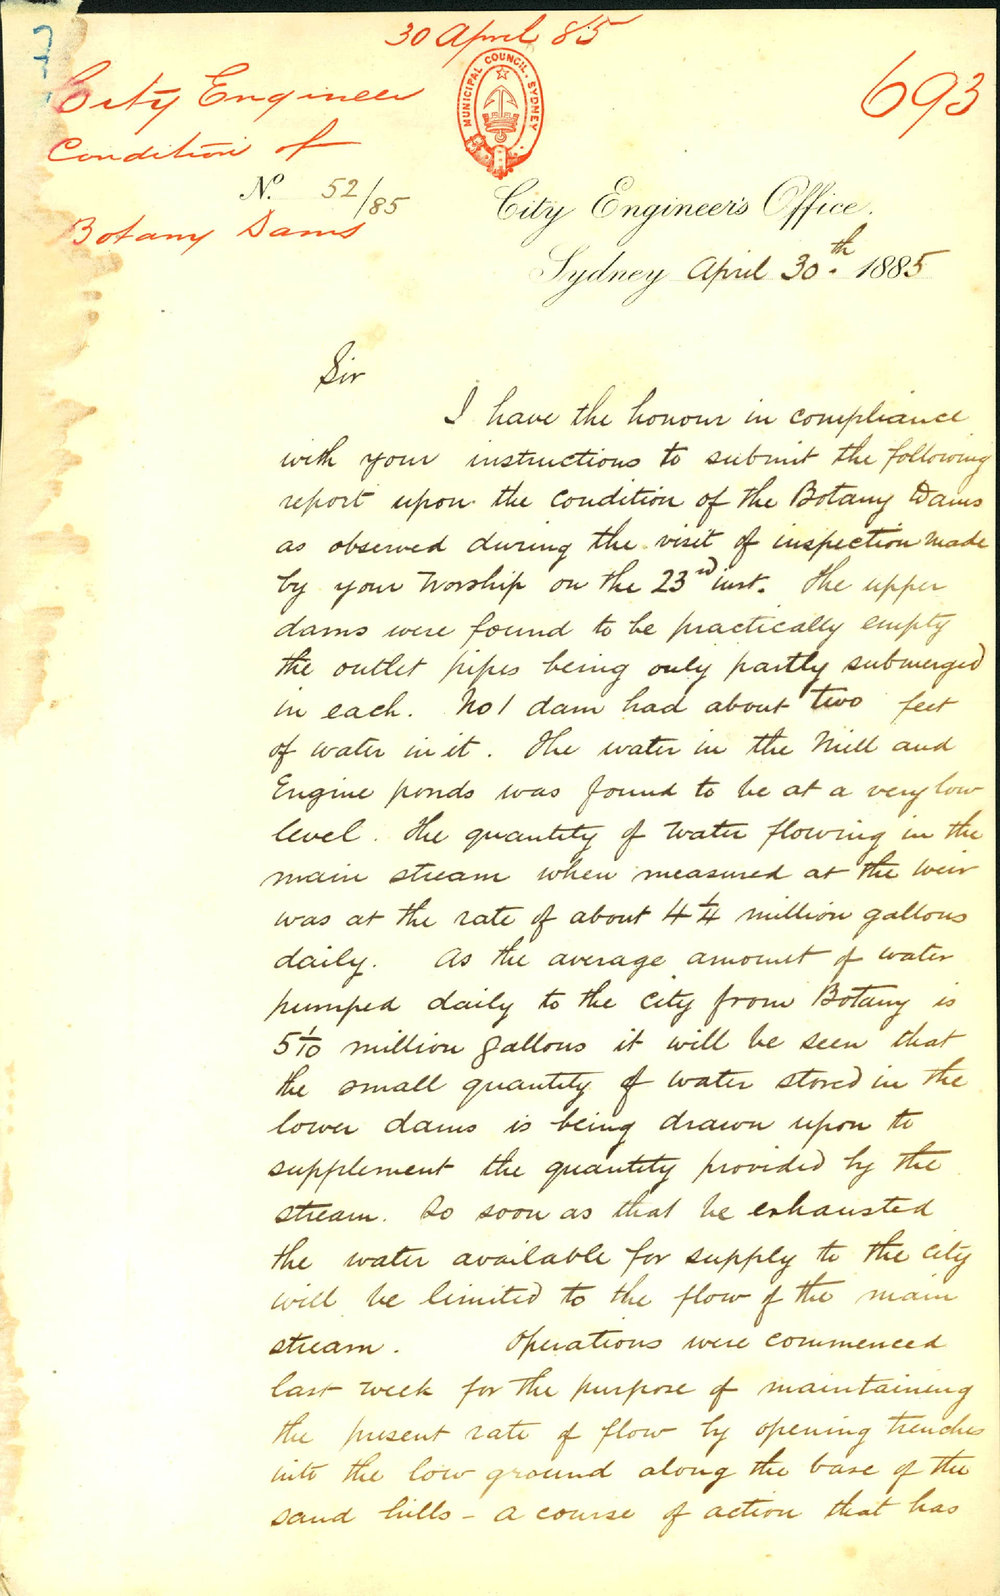 30 April 85
693
City Engineer
Condition of
Botany Dams
MUNICIPAL COUNCIL. SYDNEY
No. 52/85
City Engineer's Office.
Sydney April 30th. 1885
Sir
I have the honour in compliance
with your instructions to submit the following
report upon the condition of the Botany Dams
as observed during the visit of inspection made
by your Worship on the 23rd inst. The upper
dams were found to be practically empty
the outlet pipes being only partly submerged
in each. No 1 dam had about two feet
of water in it. The water in the Mill and
Engine ponds was found to be at a very low
level. The quantity of water flowing in the
main stream when measured at the weir
was at the rate of about 4 1/4 million gallons
daily. As the average amount of water
pumped daily to the city from Botany is
5 1/10 million gallons it will be seen that
the small quantity of water stored in the
lower dams is being drawn upon to
supplement the quantity provided by the
stream. So soon as that be exhausted
the water available for supply to the city
will be limited to the flow of the main
stream. Operations were commenced
last week for the purpose of maintaining
the present rate of flow by opening trenches
into the low ground along the base of the
sand hills - a course of action that has